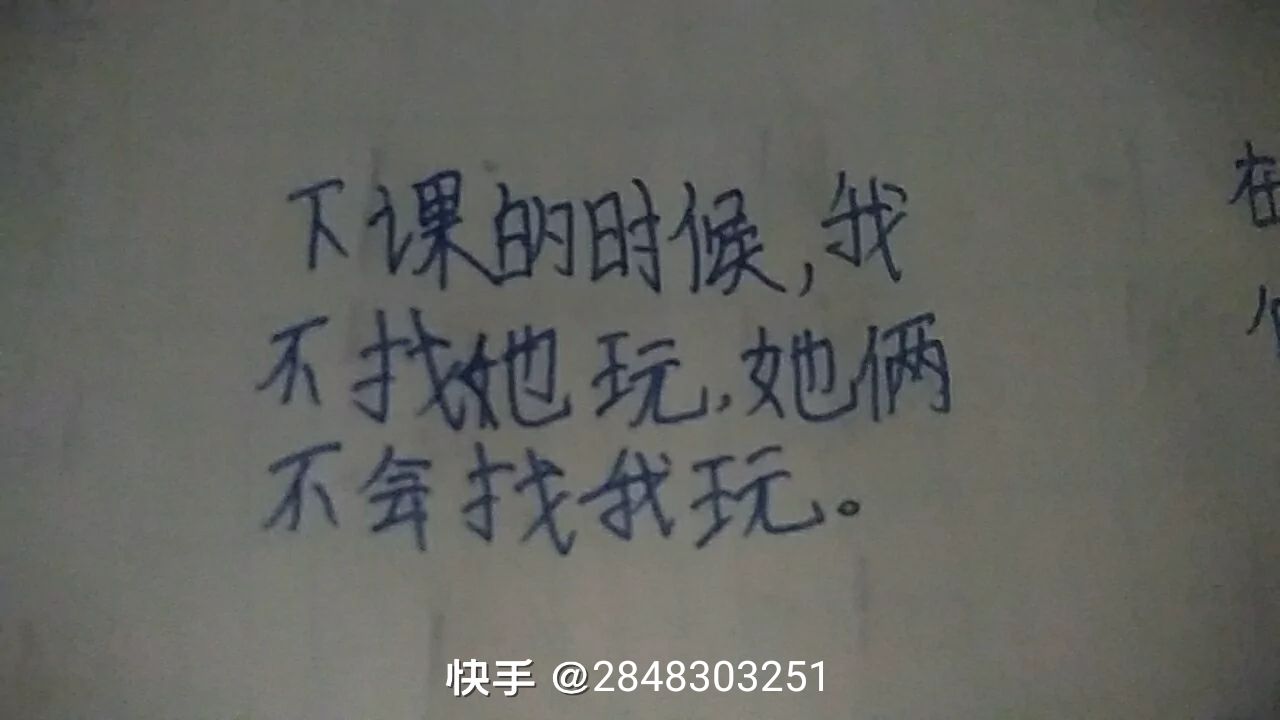 下课的时候,我
不找她玩,她俩
不会找我玩。
在
快手 @2848303251